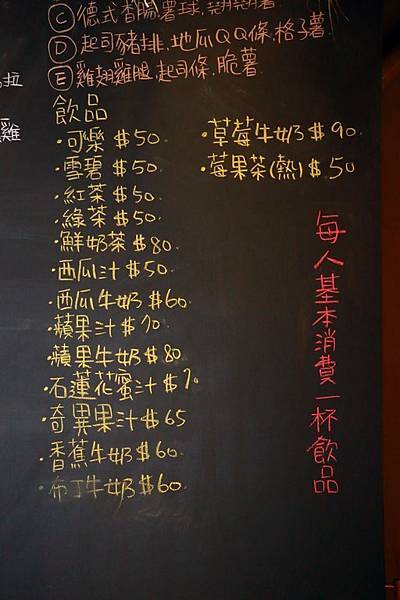 Ⓒ德式香腸.薯球.翅
Ⓓ起司豬排.地瓜QQ條.格子薯
Ⓔ雞翅雞腿.起司條.脆薯
拉
雞
飲品
·可樂 $50
·雪碧 $50
·紅茶 $50
·綠茶 $50
·鮮奶茶 $80
·西瓜汁 $50
·西瓜牛奶 $60
·蘋果汁 $70
·蘋果牛奶 $80
·石蓮花蜜汁 $70
·奇異果汁 $65
·香蕉牛奶 $60
·布丁牛奶 $60
·草莓牛奶 $90
·莓果茶(熱) $50
每人基本消費一杯飲品